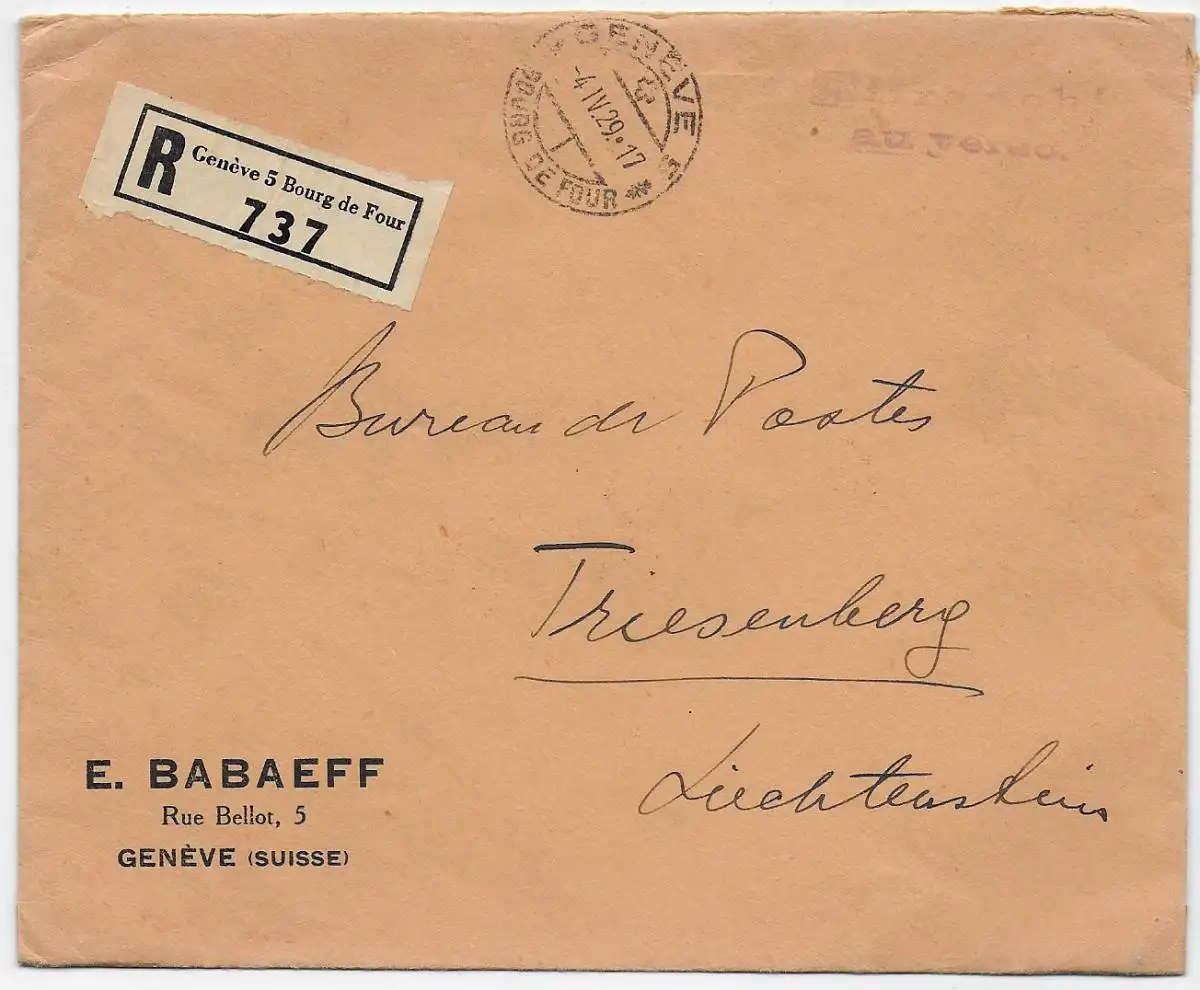 GENÈVE 5
-4.IV.29.17
BOURG DE FOUR
R Genève 5 Bourg de Four
737
au verso.
Bureau de Postes
Triesenberg
Liechtenstein
E. BABAEFF
Rue Bellot, 5
GENÈVE (SUISSE)